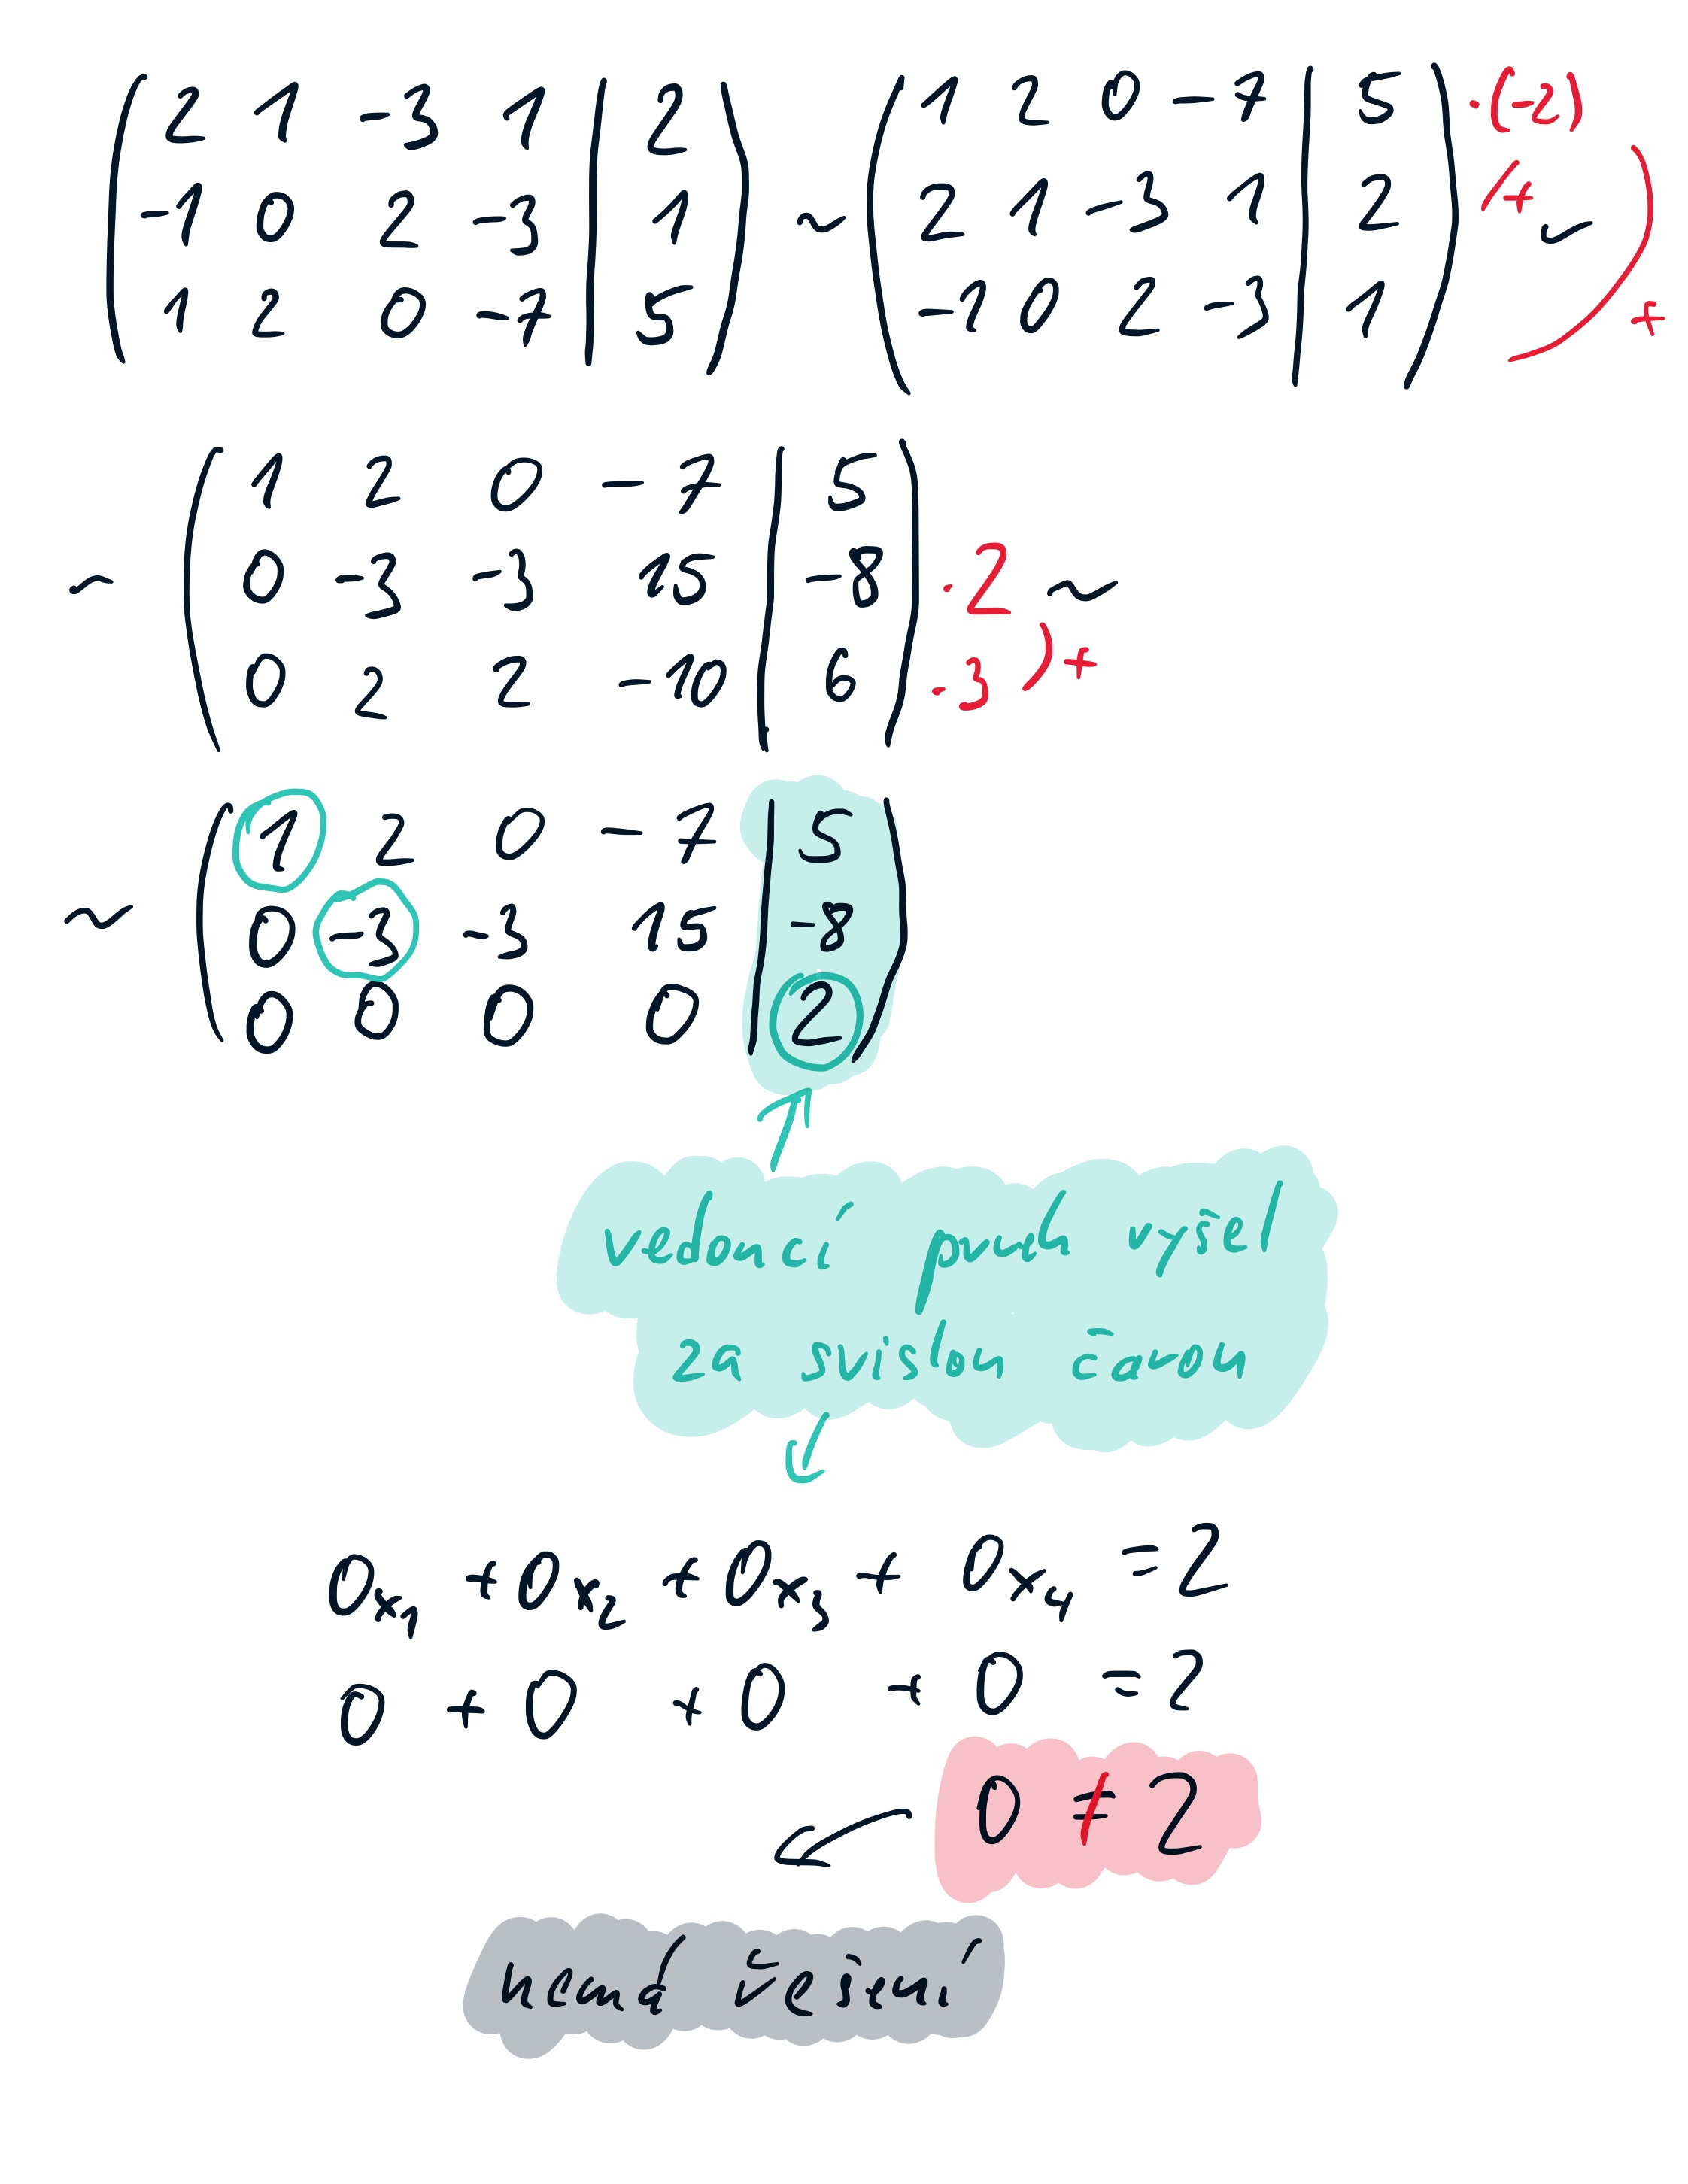 2 1 -3 1 | 2 1 2 0 -7 | 5 ·(-2)
-1 0 2 -3 | 1 ~ 2 1 -3 1 | 2 + ~
1 2 0 -7 | 5 -1 0 2 -3 | 1 +
1 2 0 -7 | 5
~ 0 -3 -3 15 | -8 ·2 ~
0 2 2 -10 | 6 ·3 +
1 2 0 -7 | 5
~ 0 -3 -3 15 | -8
0 0 0 0 | 2
vedoucí prvek vyšel
za svislou čarou
0x₁ + 0x₂ + 0x₃ + 0x₄ = 2
0 + 0 + 0 + 0 = 2
0 ≠ 2
nemá řešení